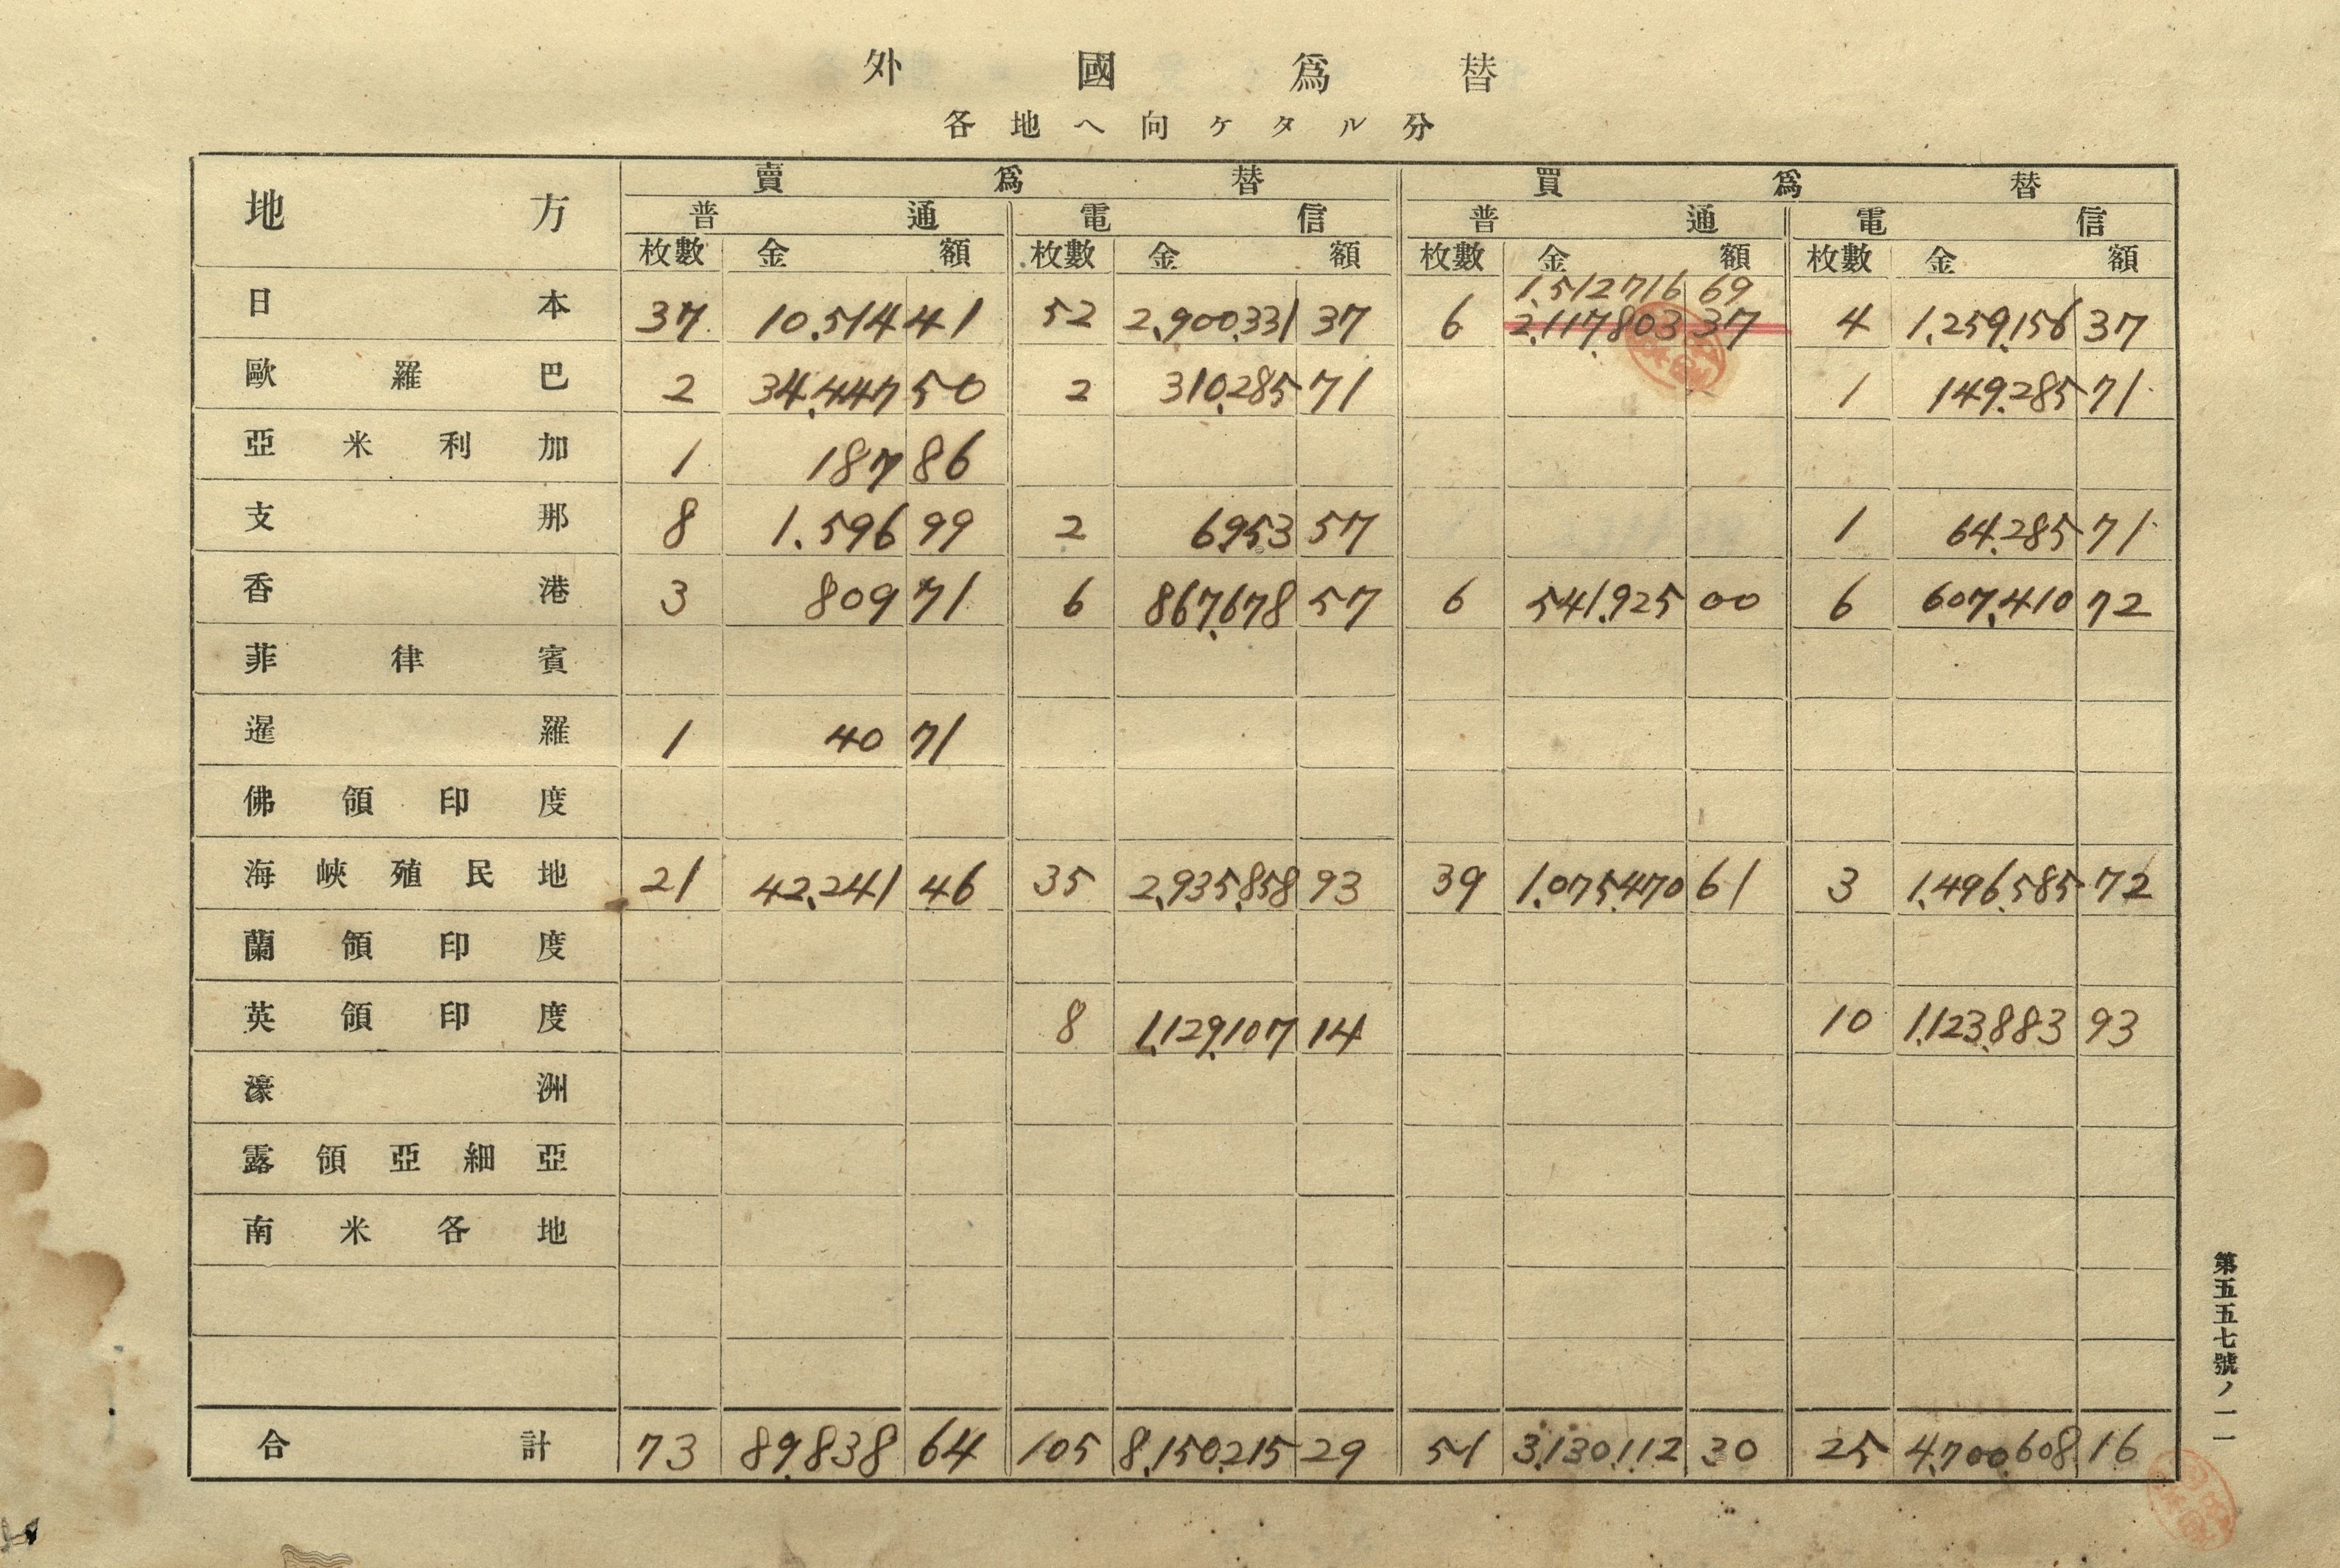 外國爲替
各地ヘ向ケタル分
地方 賣爲替 買爲替
普通 電信 普通 電信
枚數 金額 枚數 金額 枚數 金額 枚數 金額
1,512716 69
日本 37 10.514 41 52 2,900,331 37 6 2,117,803 37 4 1,259,156 37
歐羅巴 2 34,447 50 2 310,285 71 1 149,285 71
亞米利加 1 187 86
支那 8 1.596 99 2 6,953 57 1 64,285 71
香港 3 809 71 6 867,678 57 6 541,925 00 6 607,410 72
菲律賓
暹羅 1 40 71
佛領印度
海峽殖民地 21 42,241 46 35 2,935,858 93 39 1,075,470 61 3 1,496,585 72
蘭領印度
英領印度 8 1,129,107 14 10 1,123,883 93
濠洲
露領亞細亞
南米各地
合計 73 89,838 64 105 8,150,215 29 51 3,130,112 30 25 4,700,608 16
第五五七號ノ一一